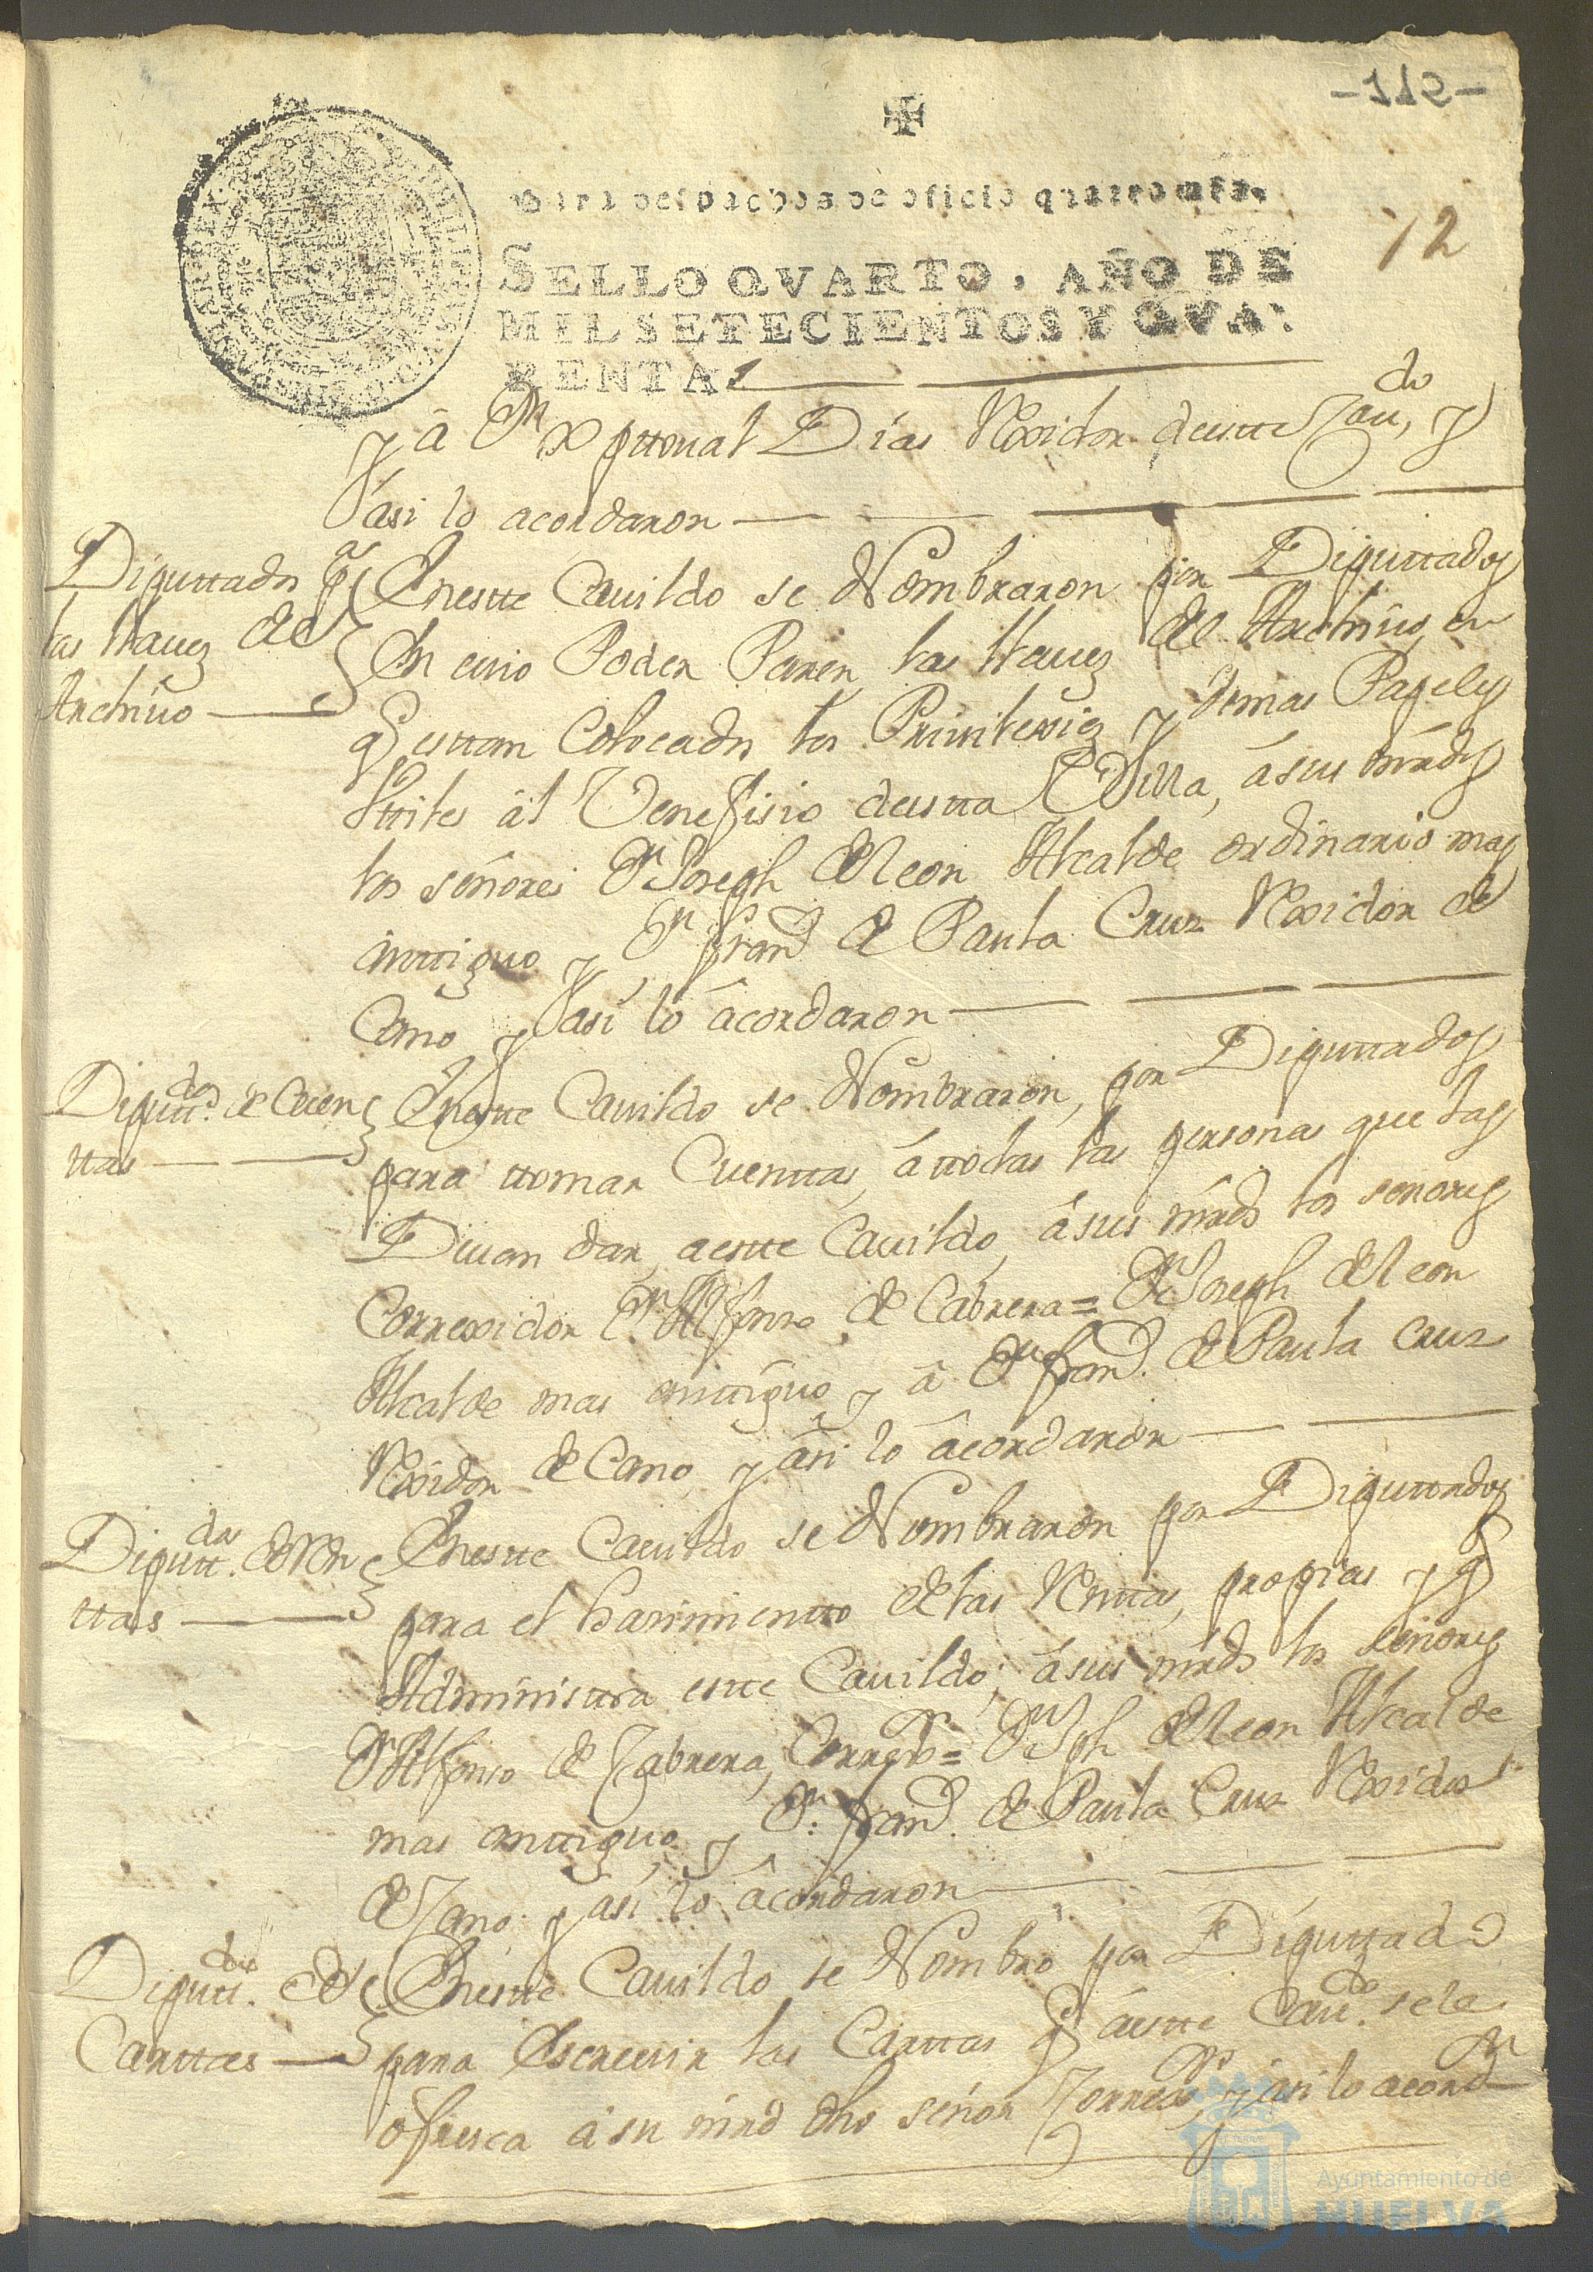 -112-
Para despachos de oficio quatro mrs.
12
SELLO QVARTO, AÑO DE
MIL SETECIENTOS Y QVA-
RENTA.
y â Dn Xpttoual Días Rexidor deestte Caudo, y
âsi lo acordaron
Diputtados pa
las llaues del
Archiuo
Enestte Cauildo se Nombraron por Diputtados
En cuio Poder Paren las llaues del Archiuo, en
q esttan Colocados los Priuilexios y demas Papeles
Vttiles âl Venefisio deestta Villa, âsus mrdes
los señores Dn Joseph de Leon Alcalde ordinario mas
anttiguo y Dn Franco de Paula Cruz Rexidor de
Cano y âsi lo âcordaron
Diputtdos de Cuen
ttas
Enestte Cauildo se Nombraron, por Diputtados
para ttomar Cuenttas, âttodas las personas que las
Deuan dar, aestte Cauildo, âsus mrds los señores
Correxidor Dn Alfonso de Cabrera = Dn Joseph de Leon
Alcalde mas anttiguo y â Dn Franco de Paula Cruz
Rexidor de Cano, y âsi lo âcordaron
Diputtdos de Ren
ttas
Enestte Cauildo se Nombraron por Diputtados
para el hasimientto de las Renttas, propias y q
Administtra estte Cauildo, âsus mrds los señores
Dn Alfonso de Cabrera, Corregor = Dn Jph de Leon Alcalde
mas anttiguo, y Dn Franco de Paula Cruz Rexidor
de Cano y âsi lo âcordaron
Diputtdos de
Carttas
Enestte Cauildo se Nombró por Diputtado
para Escreuir las Carttas q âestte Caudo se le
ôfresca â su mrd dho señor Corregor, y âsi lo acordn
Ayuntamiento de
HUELVA